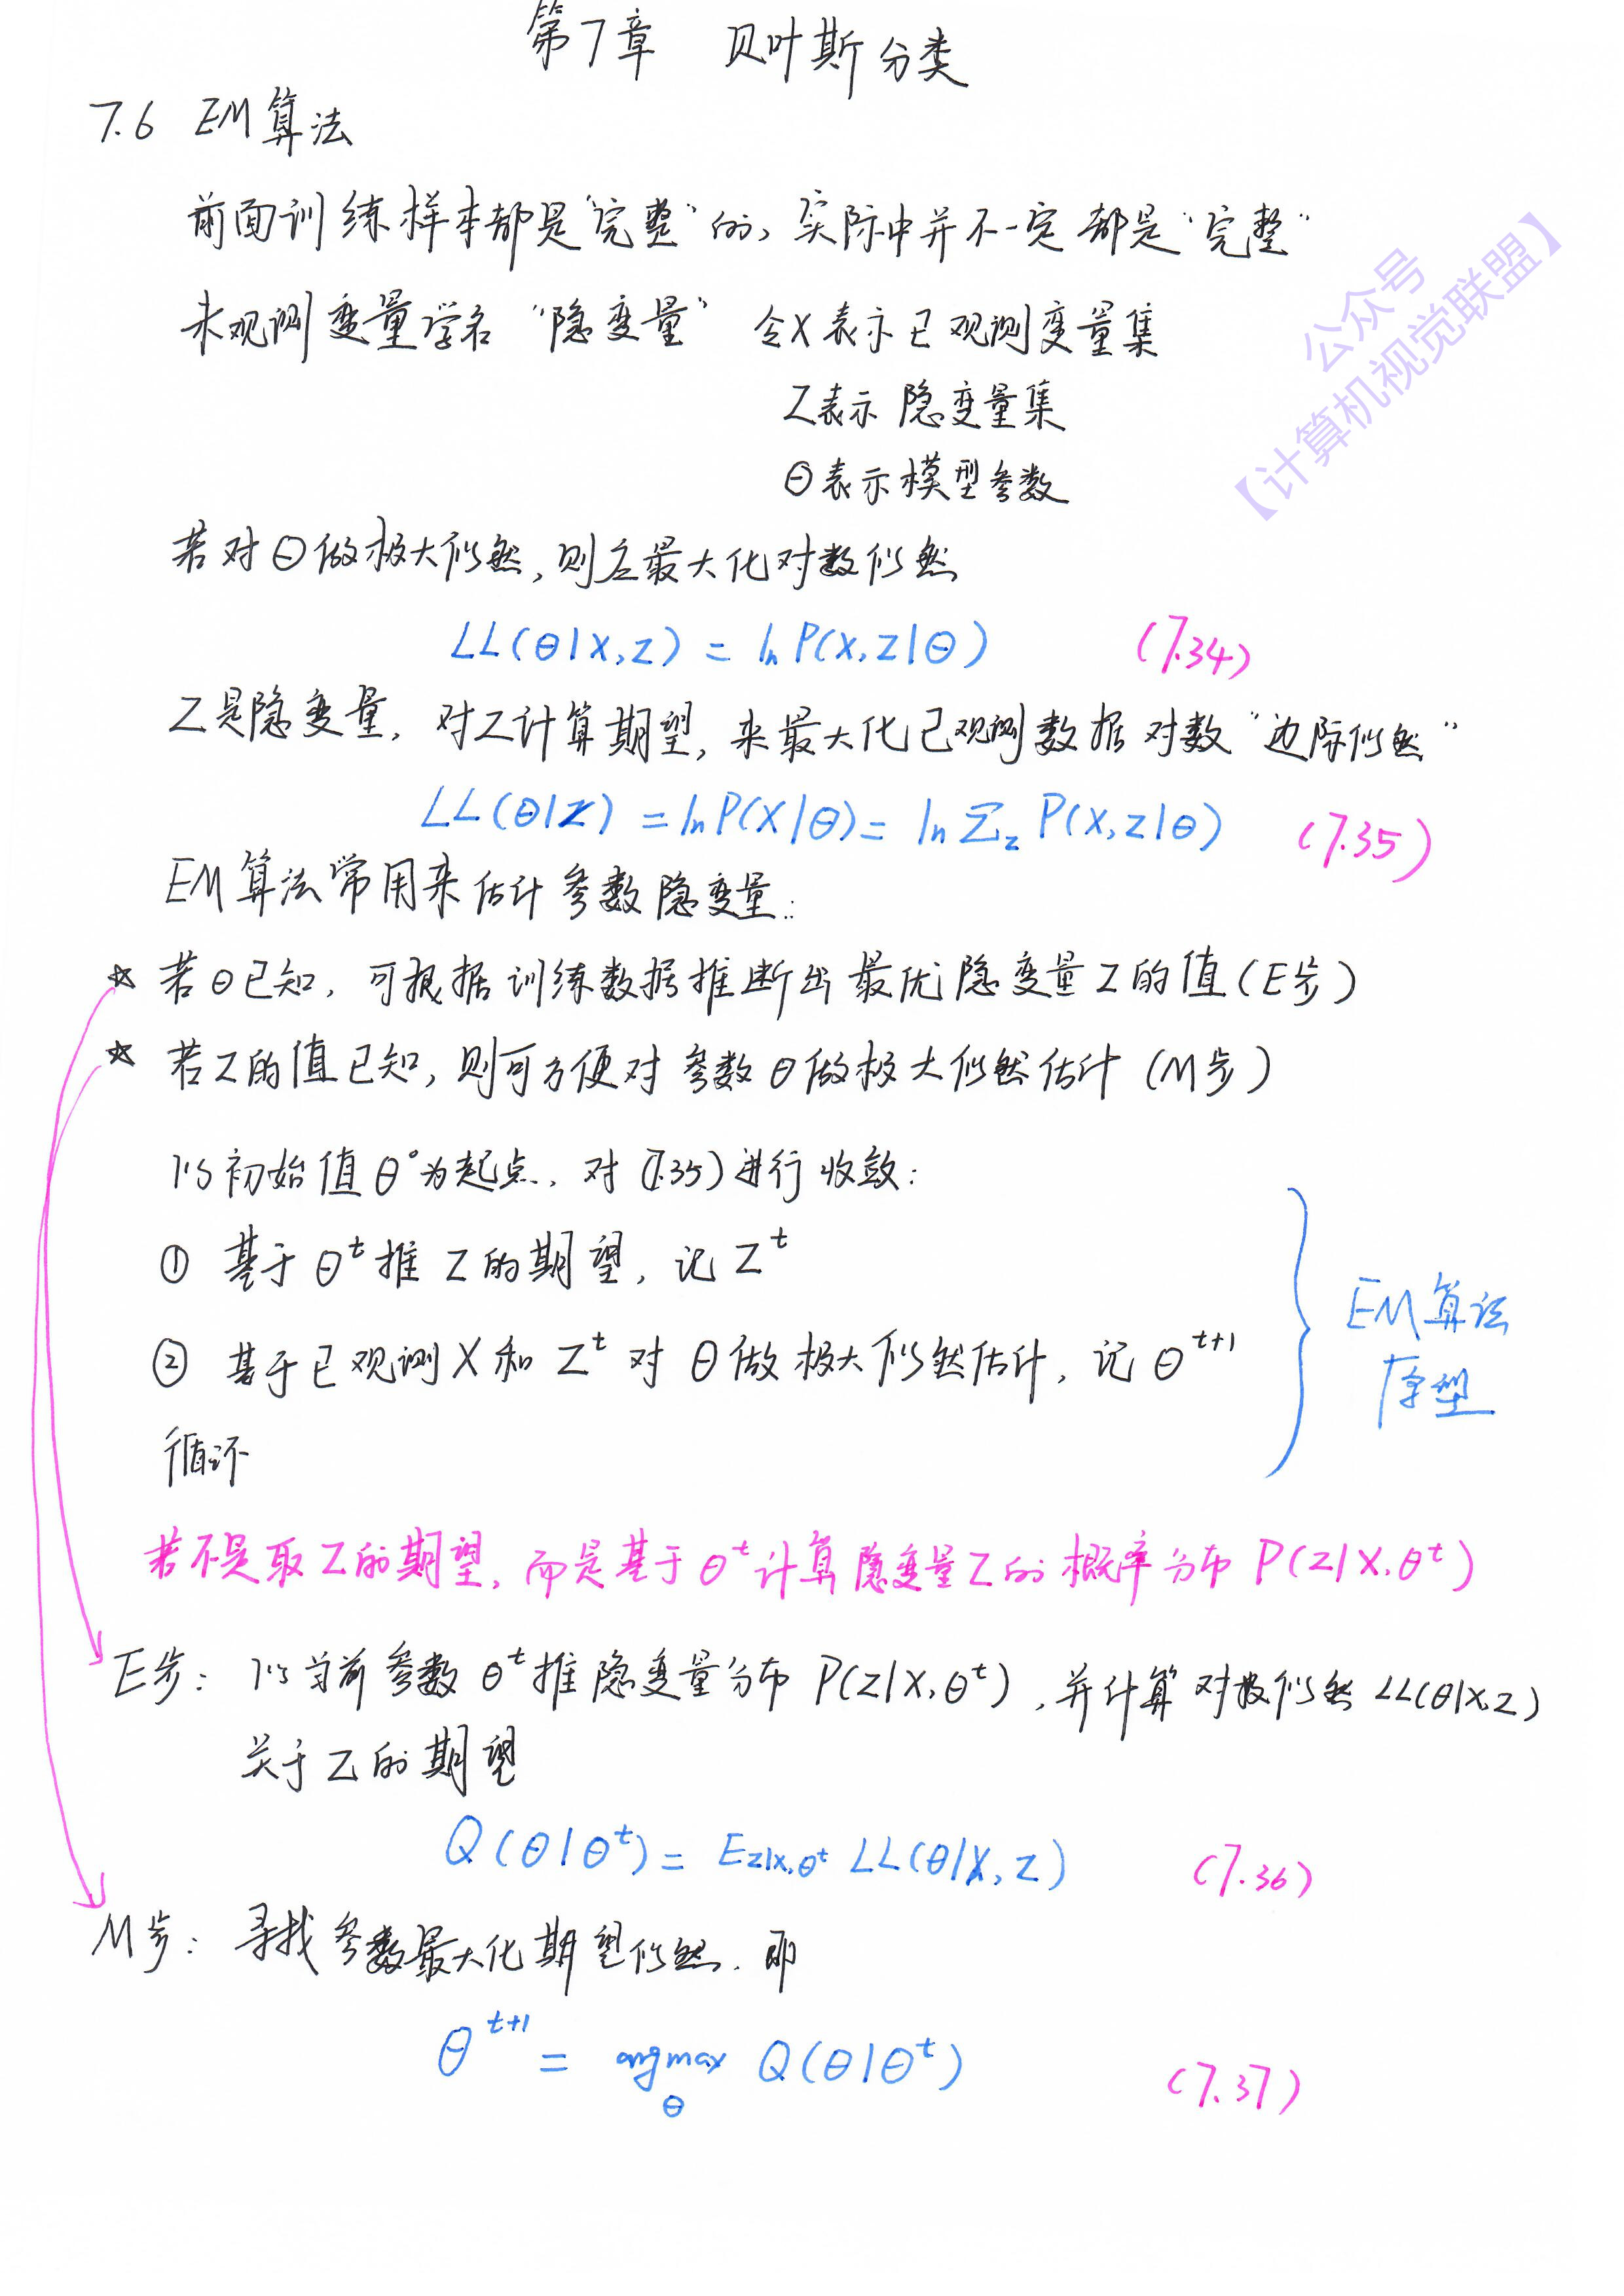 第7章 贝叶斯分类
7.6 EM算法
前面训练样本都是“完整”的,实际中并不一定都是“完整”
未观测变量学名“隐变量” 令X表示已观测变量集
Z表示隐变量集
Θ表示模型参数
公众号
【计算机视觉联盟】
若对Θ做极大似然,则应最大化对数似然
LL(Θ|X,Z) = ln P(X,Z|Θ) (7.34)
Z是隐变量,对Z计算期望,来最大化已观测数据对数“边际似然”
LL(Θ|Z) = ln P(X|Θ) = ln Σ_z P(X,Z|Θ) (7.35)
EM算法常用来估计参数隐变量:
☆ 若Θ已知,可根据训练数据推断出最优隐变量Z的值(E步)
☆ 若Z的值已知,则可方便对参数Θ做极大似然估计(M步)
以初始值Θ⁰为起点,对(7.35)进行收敛:
① 基于Θ^t推Z的期望,记Z^t
② 基于已观测X和Z^t对Θ做极大似然估计,记Θ^{t+1}
循环
EM算法
原型
若不是取Z的期望,而是基于Θ^t计算隐变量Z的概率分布P(Z|X,Θ^t)
E步: 以当前参数Θ^t推隐变量分布P(Z|X,Θ^t),并计算对数似然LL(Θ|X,Z)
关于Z的期望
Q(Θ|Θ^t) = E_{Z|X,Θ^t} LL(Θ|X,Z) (7.36)
M步: 寻找参数最大化期望似然,即
Θ^{t+1} = argmax_Θ Q(Θ|Θ^t) (7.37)